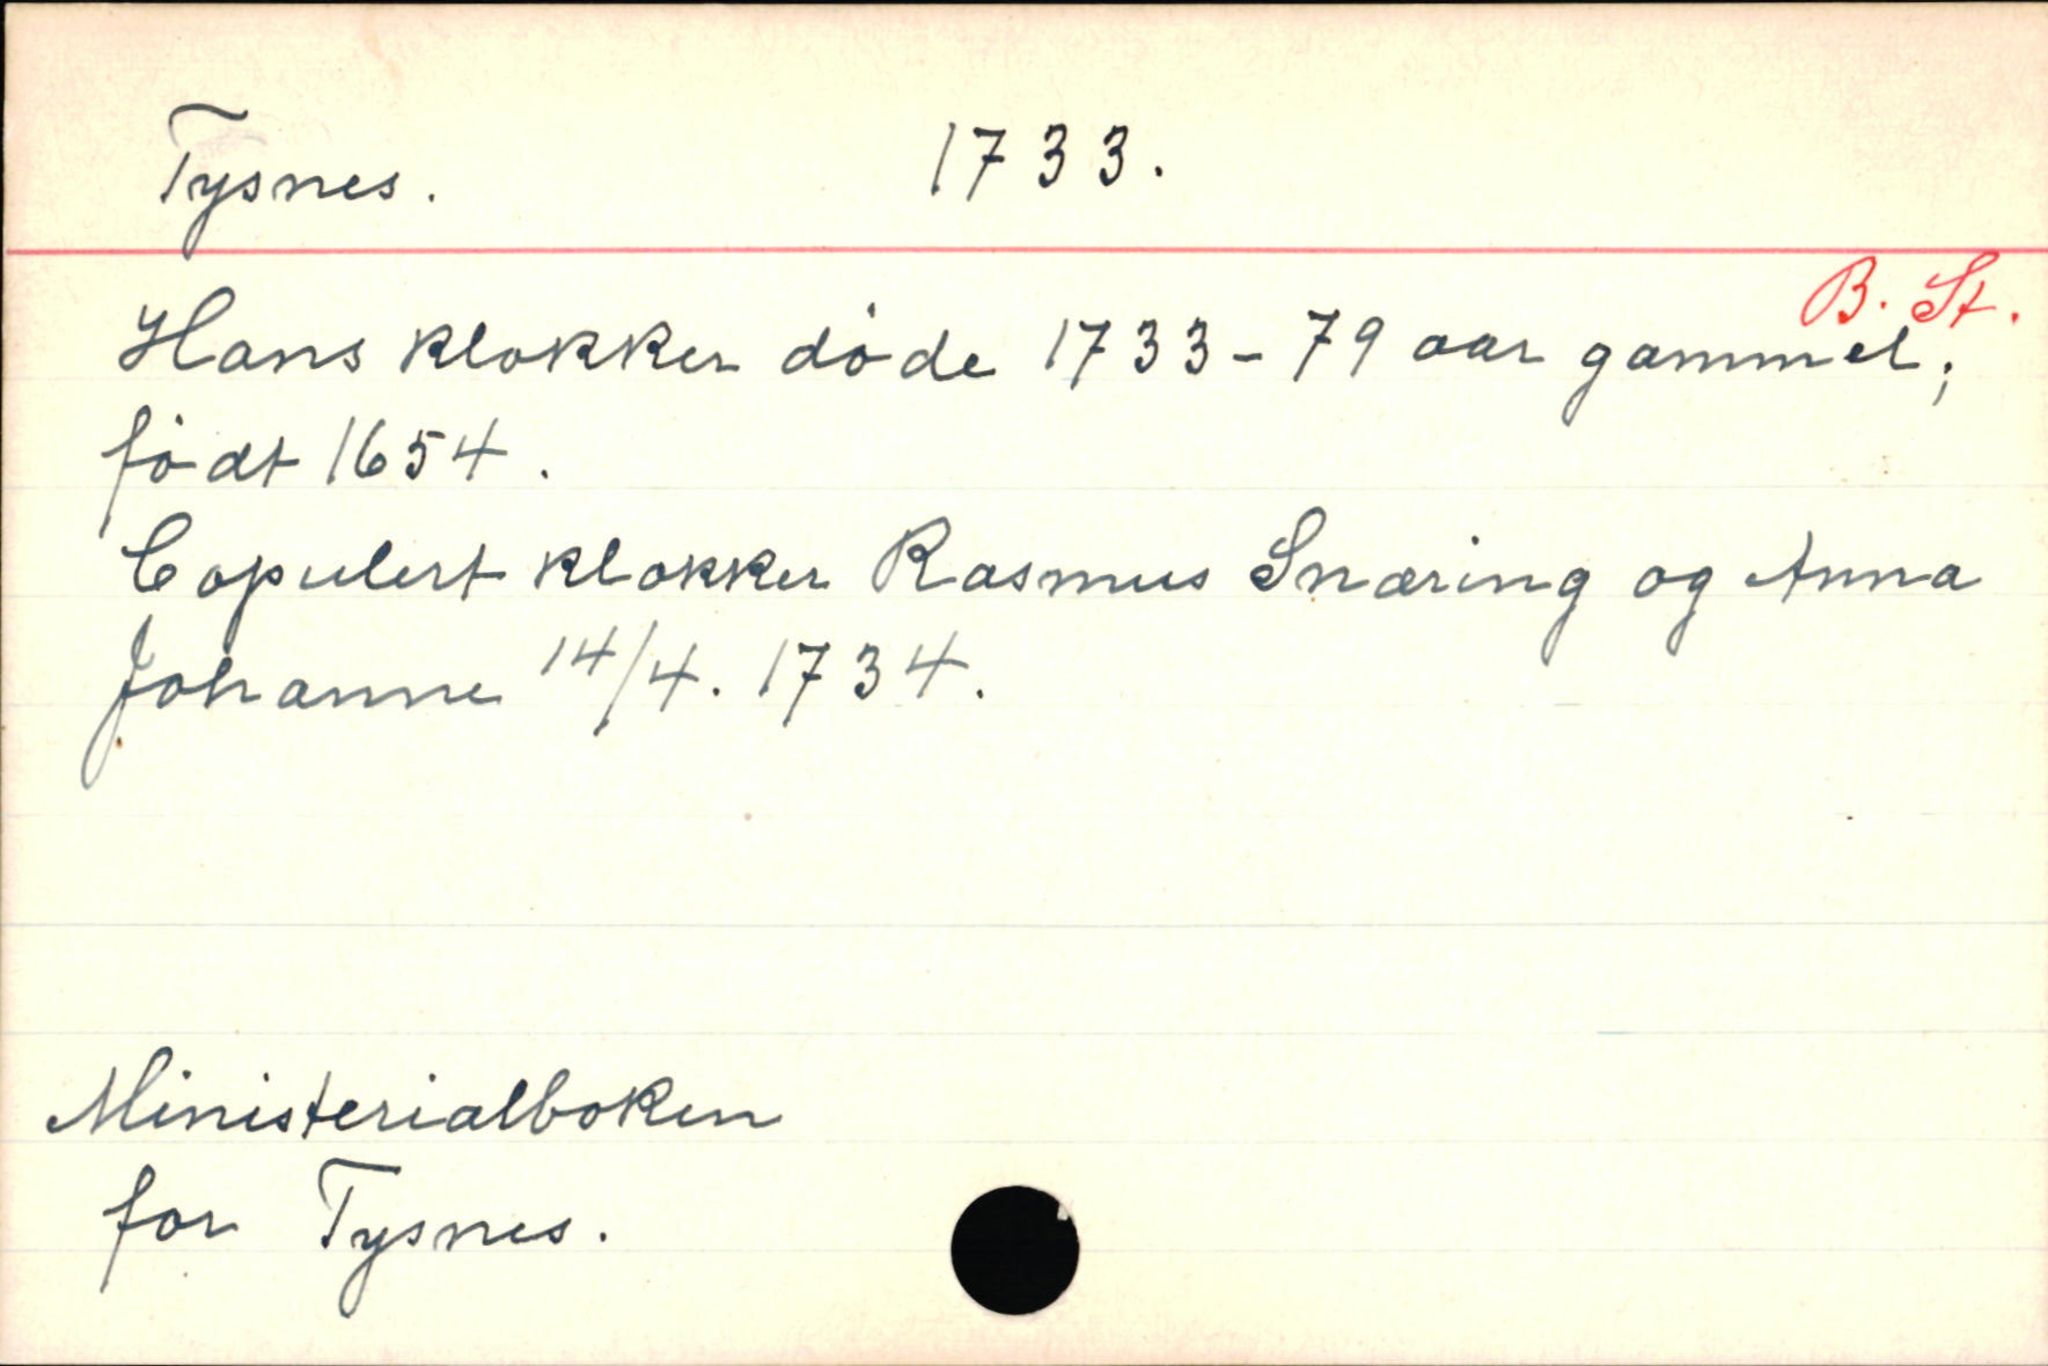 Tysnes. 1733.
B. St.
Hans klokker døde 1733 - 79 aar gammel;
født 1654.
Copulert klokker Rasmus Snæring og Anna
Johanne 14/4. 1734.
Ministerialboken
for Tysnes.